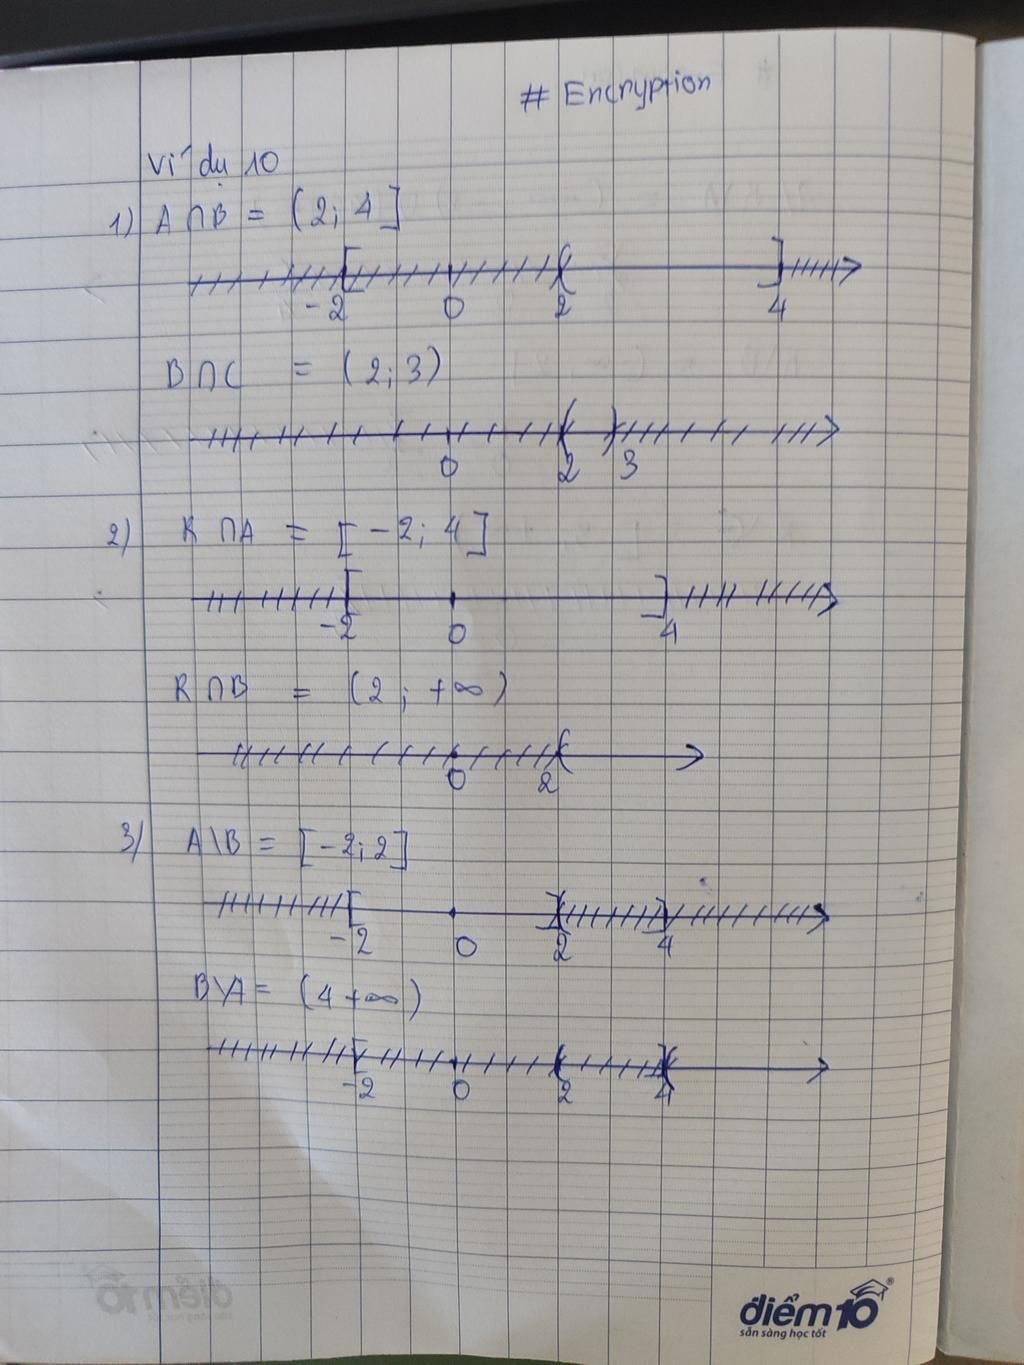 # Encryption
Ví dụ 10
1) A∩B = (2; 4]
-2 0 2 4
B∩C = (2; 3)
0 2 3
2) R∩A = [-2; 4]
-2 0 4
R∩B = (2; +∞)
0 2
3) A\B = [-2; 2]
-2 0 2 4
B\A = (4 +∞)
-2 0 2 4
điểm10®
sẵn sàng học tốt